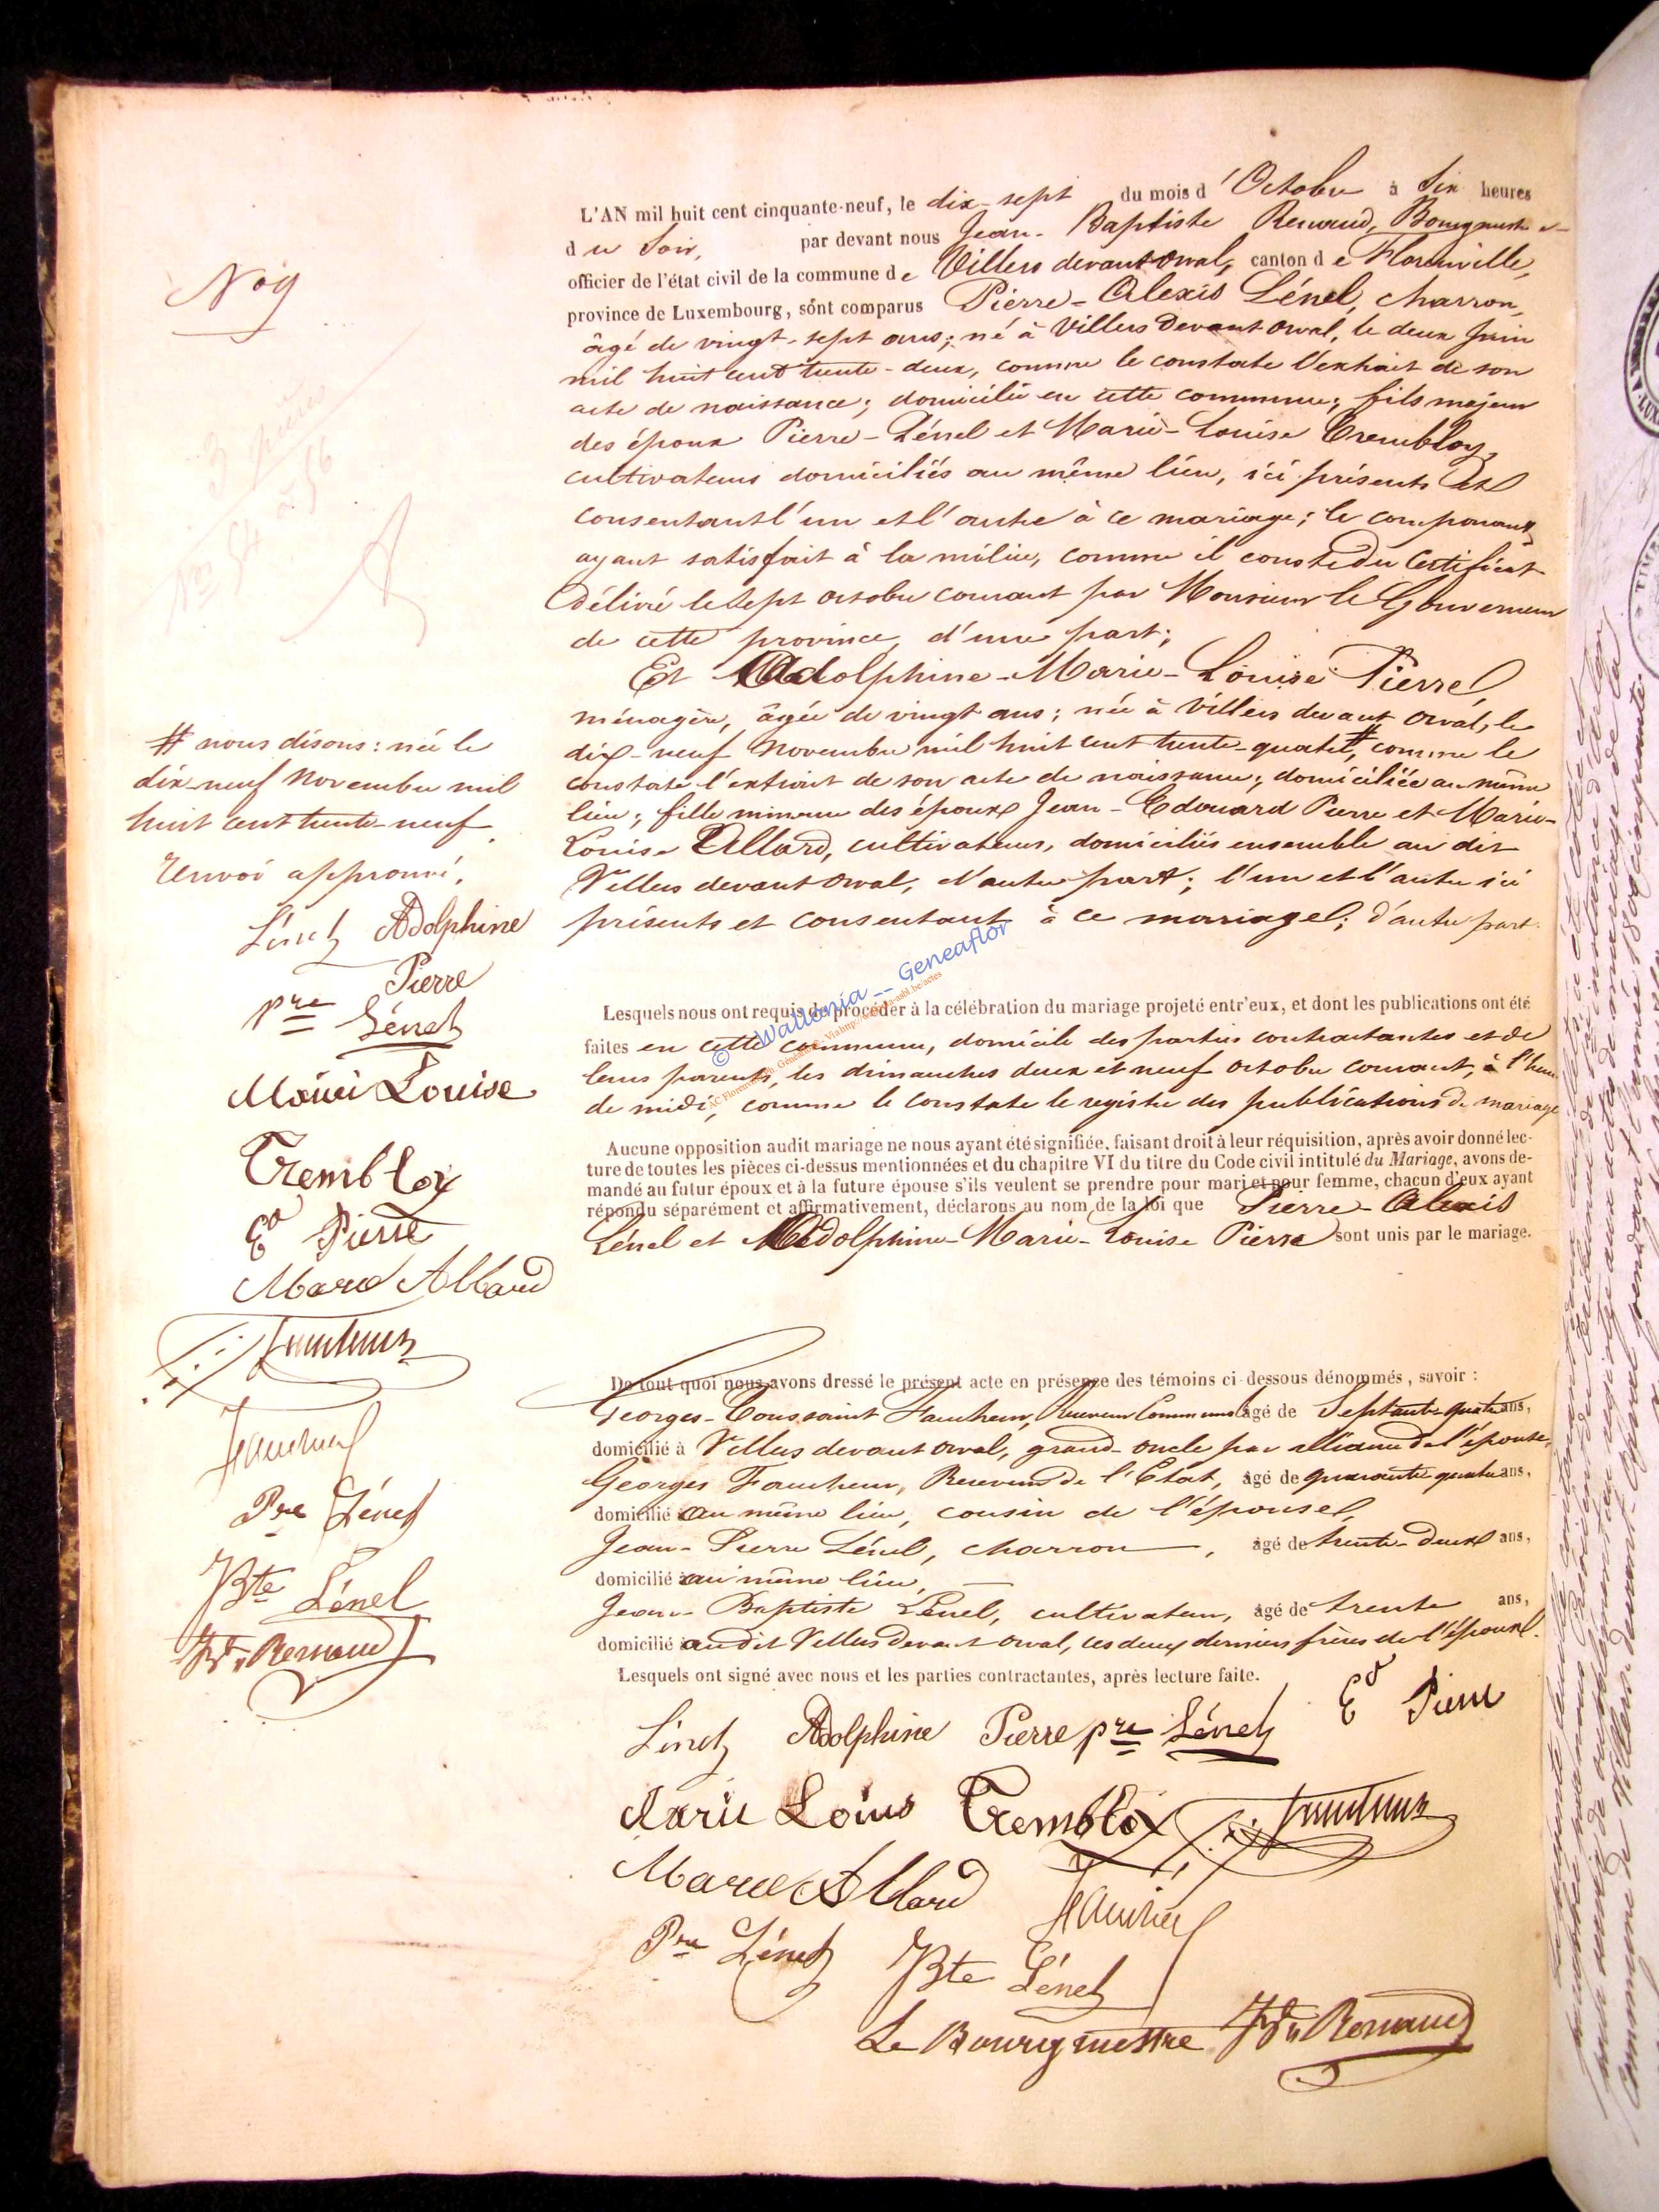 L'AN mil huit cent cinquante-neuf, le dix-sept du mois d'Octobre à Six heures
du Soir, par devant nous Jean-Baptiste Renaud, Bourgmestre
officier de l'état civil de la commune de Villers devant Orval, canton de Florenville,
province de Luxembourg, sont comparus Pierre-Alexis Lénel, charron,
âgé de vingt-sept ans; né à Villers devant Orval, le deux Juin
mil huit cent trente-deux, comme le constate l'extrait de son
acte de naissance; domicilié en cette commune; fils majeur
des époux Pierre-Lénel et Marie-Louise Trembloy,
cultivateurs domiciliés au même lieu, ici présents et
consentant l'un et l'autre à ce mariage; le comparant
ayant satisfait à la milice, comme il conste du Certificat
délivré le sept octobre courant par Monsieur le Gouverneur
de cette province, d'une part;
Et Adolphine-Marie-Louise Pierre
ménagère, âgée de vingt ans; née à Villers devant Orval, le
dix-neuf Novembre mil huit cent trente-quatre #, comme le
constate l'extrait de son acte de naissance; domiciliée au même
lieu; fille mineure des époux Jean-Edouard Pierre et Marie-
Louise Allard, cultivateurs, domiciliés ensemble au dit
Villers devant Orval, d'autre part; l'un et l'autre ici
présents et consentant à ce mariage; d'autre part.
Lesquels nous ont requis de procéder à la célébration du mariage projeté entr'eux, et dont les publications ont été
faites en cette commune, domicile des parties contractantes et de
leurs parents, les dimanches deux et neuf octobre courant, à l'heure
de midi, comme le constate le registre des publications de mariage
Aucune opposition audit mariage ne nous ayant été signifiée, faisant droit à leur réquisition, après avoir donné lec-
ture de toutes les pièces ci-dessus mentionnées et du chapitre VI du titre du Code civil intitulé du Mariage, avons de-
mandé au futur époux et à la future épouse s'ils veulent se prendre pour mari et pour femme, chacun d'eux ayant
répondu séparément et affirmativement, déclarons au nom de la loi que Pierre-Alexis
Lénel et Adolphine-Marie-Louise Pierre sont unis par le mariage.
De tout quoi nous avons dressé le présent acte en présence des témoins ci-dessous dénommés, savoir :
Georges-Toussaint Faucheur, Receveur Communal âgé de Septante-quatre ans,
domicilié à Villers devant Orval, grand-oncle par alliance de l'épouse,
Georges Faucheur, Receveur de l'Etat, âgé de quarante quatre ans,
domicilié au même lieu, cousin de l'épouse,
Jean-Pierre Lénel, charron, âgé de trente-deux ans,
domicilié au même lieu,
Jean-Baptiste Lénel, cultivateur, âgé de trente ans,
domicilié audit Villers devant Orval, ces deux derniers frères de l'époux.
Lesquels ont signé avec nous et les parties contractantes, après lecture faite.
Lénel Adolphine Pierre Pre Lénel Ed Pierre
Marie Louis Tremblox
Marie Allard Faucheur
Pre Lénel JBte Lénel
Le Bourgmestre JBte Renaud
No 9
# nous disons: née le
dix-neuf Novembre mil
huit cent trente-neuf.
Renvoi approuvé.
Lénel Adolphine
Pierre
Pre Lénel
Marie Louise
Trembloy
Ed Pierre
Marie Allard
Faucheur
Pre Lénel
JBte Lénel
JBte Renaud
© Wallonia -- Geneaflor